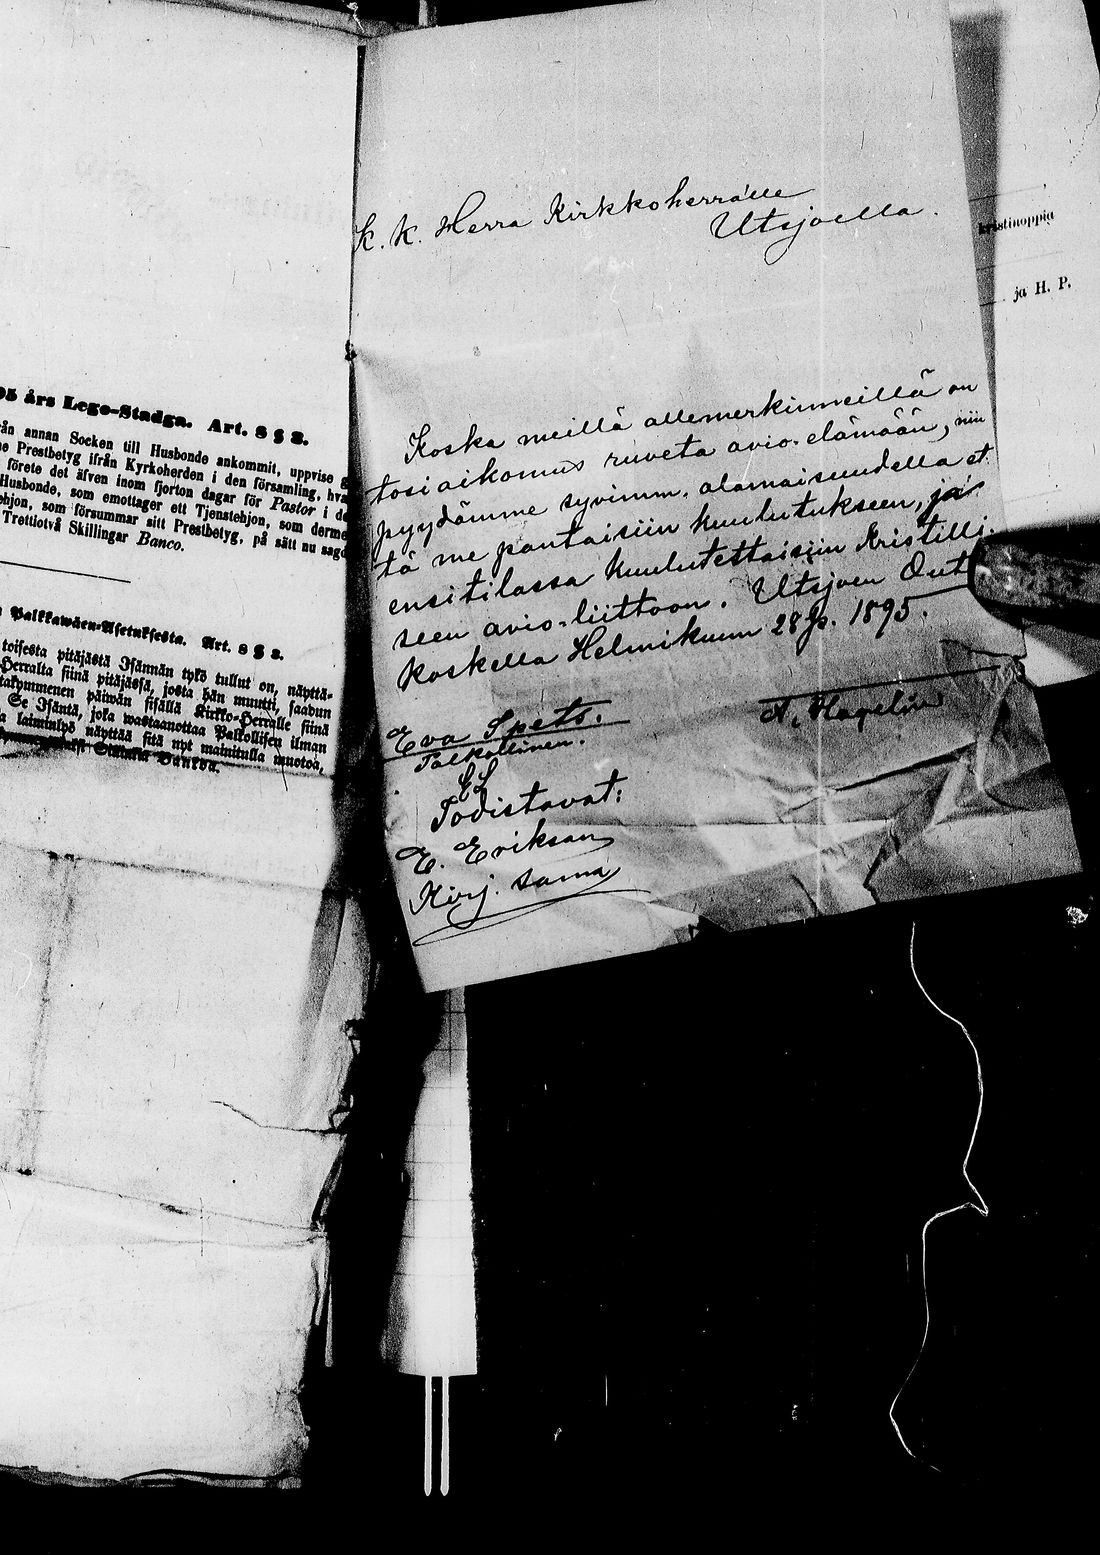 05 års Lego-Stadga. Art. 8 § 2.
från annan Socken till Husbonde ankommit, uppvise
Prestbetyg ifrån Kyrkoherden i den församling,
förete det äfven inom fjorton dagar för Pastor i
Husbonde, som emottager ett Tjenstehjon, som
som försummar sitt Prestbetyg, på sätt nu
Trettiotvå Skillingar Banco.
Palkkawäen-Asetuksesta. Art. 8 § 2.
toisesta pitäjästä Isännän tykö tullut on, näyttä-
Herralta siinä pitäjässä, josta hän muutti, saadun
päiwän sisällä Kirkko-Herralle siinä
Se Isäntä, joka wastaanottaa Palkollisen ilman
laiminlyö näyttää sitä nyt mainitulla muotoa,
Bankoa.
K. K. Herra Kirkkoherralle
Utsjoella.
Koska meillä allemerkinneillä on
tosi aikomus ruveta avio-elämään, niin
pyydämme syvimm. alamaisuudella et
tä me pantaisiin kuulutukseen, ja
ensi tilassa kuulutettaisiin Kristilli-
seen avio-liittoon. Utsjoen Out
koskella Helmikuun 28 p. 1895.
Eva Spets. A. Hagelin
Palkollinen.
ES
Todistavat:
E. Erikson
Kirj. sama
kristinoppia
ja H. P.